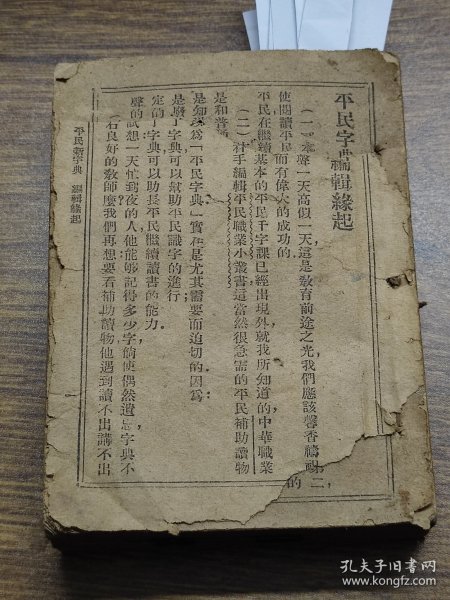 平民字典編輯緣起
(一)
聲一天高似一天這是敎育前途之光我們應該馨香禱祝
二,
的
使閱讀平民而有偉大的成功的
平民在繼續基本的平民千字課已經出現外就我所知道的中華職業
(二)計手編輯平民職業小叢書這當然很急需的平民補助讀物
是和普
是知爲「平民字典」實在是尤其需要而迫切的因爲:
是廢了字典可以幫助平民識字的進行;
定韵了字典可以助長平民繼續讀書的能力.
聲的試想一天忙到夜的人他能够記得多少字倘使偶然遺忘字典不
右良好的敎師麽我們再想要看補助讀物他遇到讀不出講不出
平民新字典 編輯緣起
孔夫子旧书网
www.kongfz.com